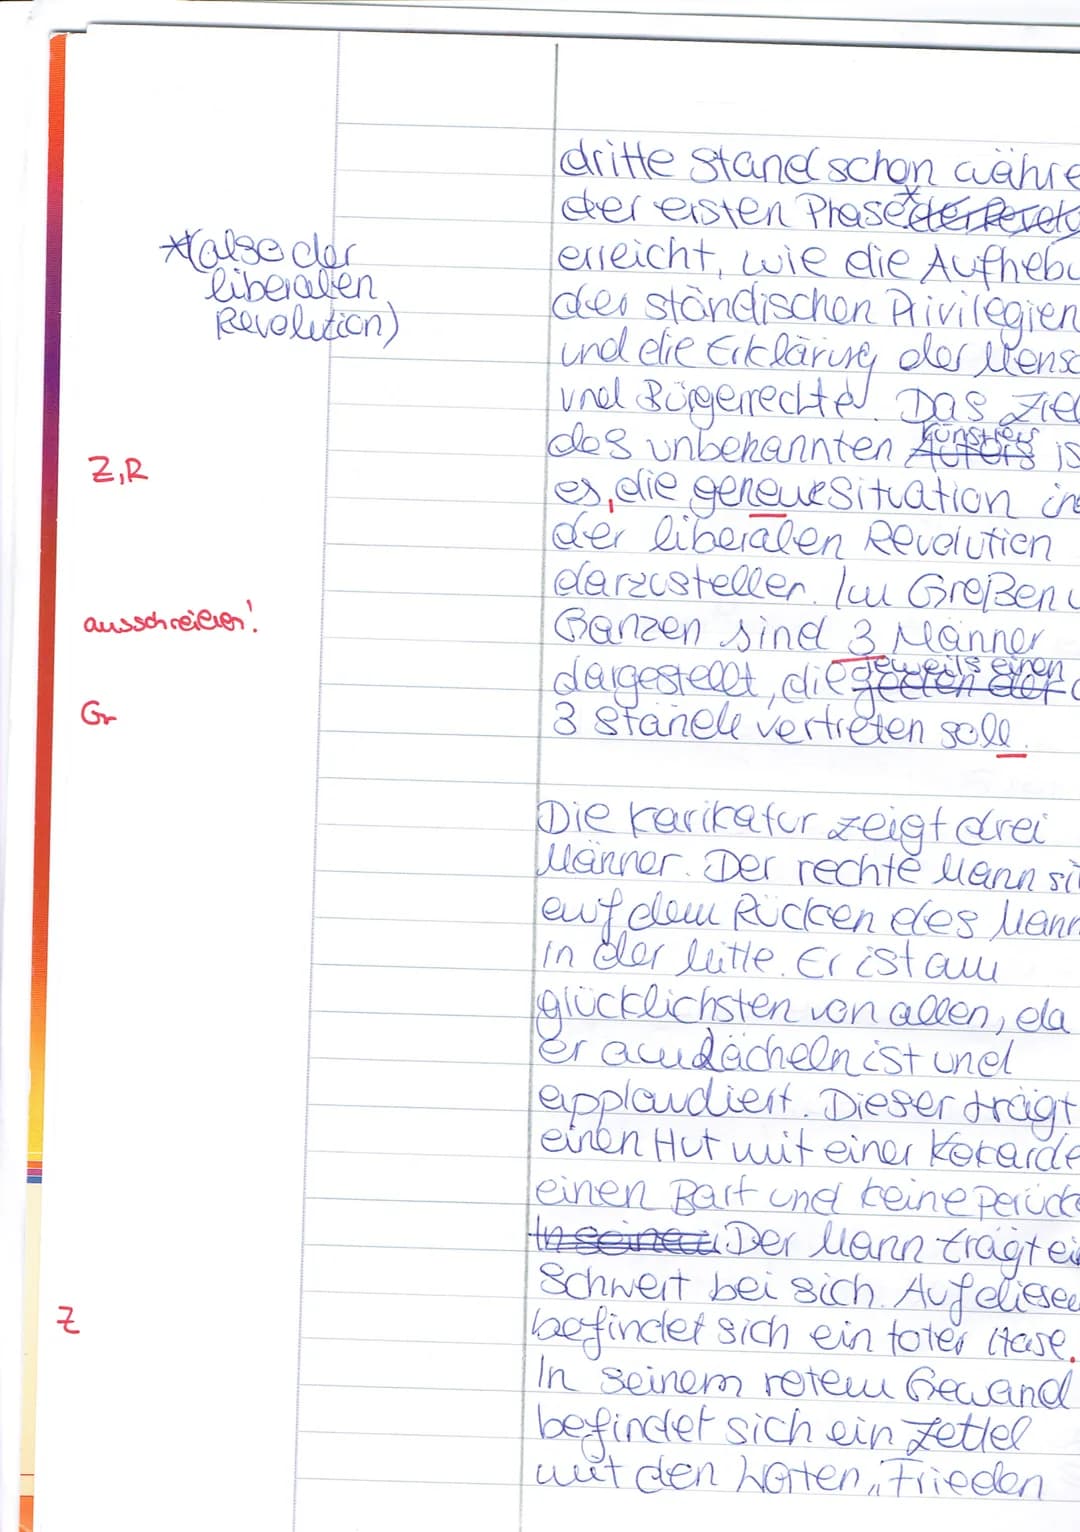 dritte Stand schon währe
der ersten Phase* der Revolu
*(also der
liberalen
Revolution)
erreicht, wie die Aufhebu
der ständischen Privilegien
und die Erklärung der Mensc
und Bürgerrechte. Das Ziel
des unbekannten Autors Künstlers is
Z,R
es, die geneue Situation in
der liberalen Revolution
darzustellen. Im Großen u
ausschreiben!
Ganzen sind 3 Männer
dargestellt, die jeweils einen
Gr
3 Stände vertreten soll.
Die Karikatur zeigt drei
Männer. Der rechte Mann si
auf dem Rücken des Mann
in der Mitte. Er ist am
glücklichsten von allen, da
er am Lächeln ist und
applaudiert. Dieser trägt
einen Hut mit einer Kokarde
einen Bart und keine Perück
In seiner Der Mann trägt ei
Schwert bei sich. Auf diese
befindet sich ein toter Hase.
Z
In seinem rotem Gewand
befindet sich ein Zettel
mit den Worten „Frieden